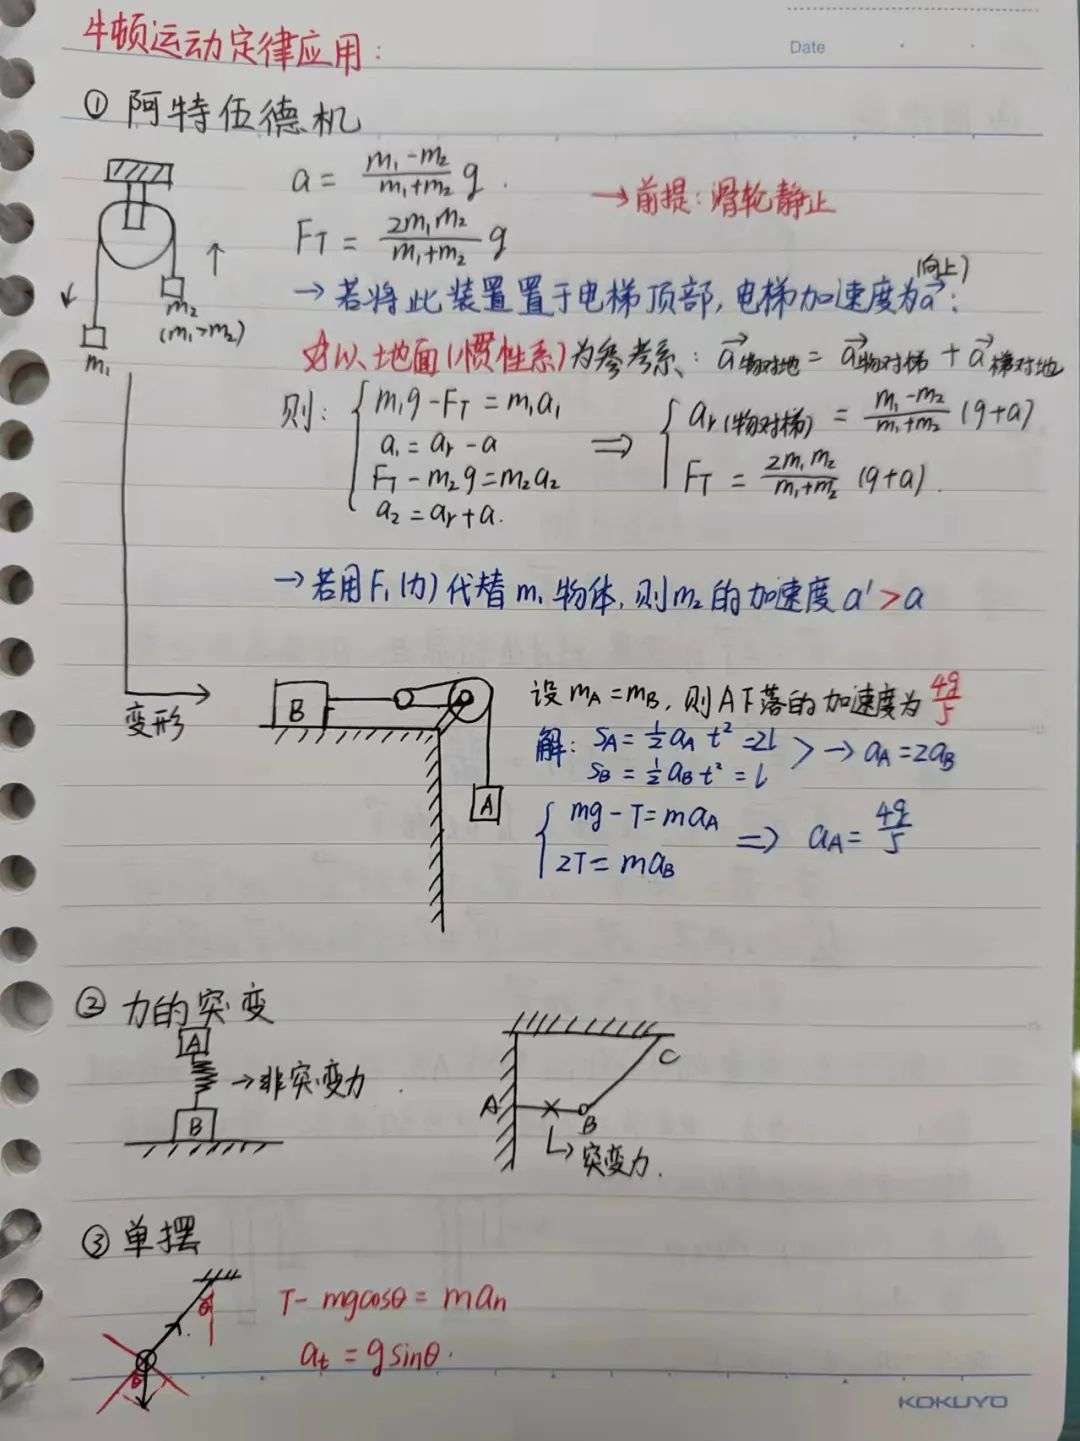 牛顿运动定律应用:
Date
① 阿特伍德机
a = \frac{m₁-m₂}{m₁+m₂} g .
→前提:滑轮静止
F_T = \frac{2m₁m₂}{m₁+m₂} g
m₂
(m₁>m₂)
m₁
→若将此装置置于电梯顶部,电梯加速度为\vec{a}(向上):
以地面(惯性系)为参考系: \vec{a}物对地 = \vec{a}物对梯 + \vec{a}梯对地
则: { m₁g - F_T = m₁a₁
a₁ = aᵣ - a
F_T - m₂g = m₂a₂
a₂ = aᵣ + a.
⇒ { aᵣ(物对梯) = \frac{m₁-m₂}{m₁+m₂} (g+a)
F_T = \frac{2m₁m₂}{m₁+m₂} (g+a) .
→若用F₁(力)代替m₁物体,则m₂的加速度a'>a
变形
B
A
设m_A=m_B,则A下落的加速度为\frac{4g}{5}
解: S_A = \frac{1}{2}a_A t² = 2l
S_B = \frac{1}{2}a_B t² = l
> → a_A = 2a_B
{ mg - T = ma_A
2T = ma_B
⇒ a_A = \frac{4g}{5}
② 力的突变
A
→非突变力
B
C
A
B
↳突变力.
③ 单摆
θ
T - mgcosθ = maₙ
θ
aₜ = gsinθ.
KOKUYO